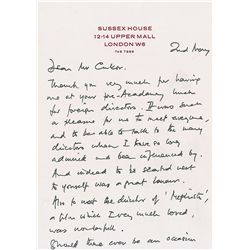 SUSSEX HOUSE
12-14 UPPER MALL
LONDON W6
748 7899
Dear Mr Cukor.
Thank you very much for having
me at your fine Academy lunch
for foreign directors. It was such
a pleasure for me to meet everyone,
and to be able to talk to the many
directors whom I have so long
admired and been influenced by.
And indeed to be seated next
to yourself was a great honour.
Also to meet the director of 'Mephisto',
a film which I very much loved,
was wonderful.
Should time ever be an occasion